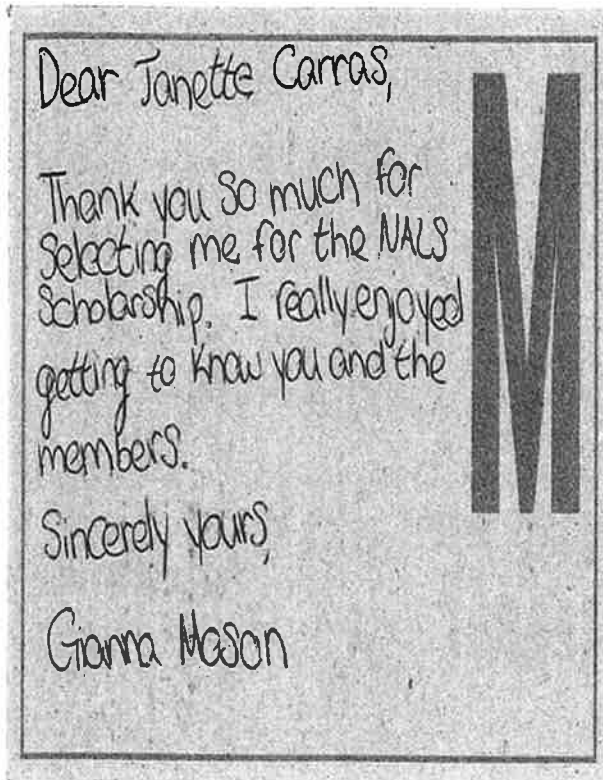 Dear Janette Carras,
M
Thank you so much for
selecting me for the NALS
Scholarship. I really enjoyed
getting to know you and the
members.
Sincerely yours,
Gianna Mason